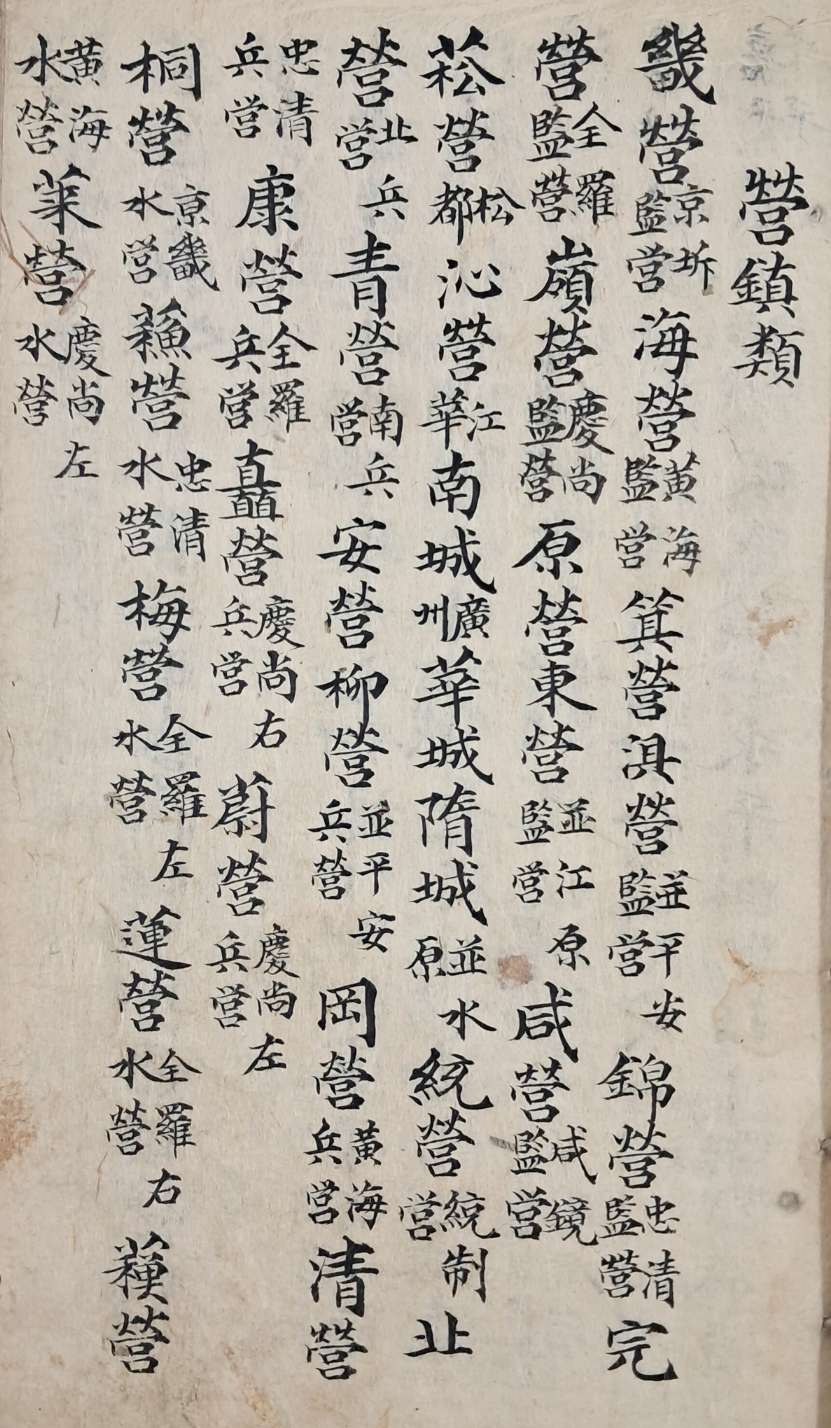 營鎮類
畿營京圻監営海營黃海監営箕營浿營並平安監営錦營忠清監營完
營全羅監營嶺營慶尚監營原營東營並江原監営咸營咸鏡監営
菘營松都沁營江華南城廣州華城隋城並水原統營統制営北
營北兵営青營南兵営安營柳營並平安兵營岡營黃海兵営清營
忠清兵営康營全羅兵営矗營慶尚右兵営蔚營慶尚左兵営
桐營京畿水営蘓營忠清水營梅營全羅左水營蓮營全羅右水營營
黃海水營萊營慶尚左水營